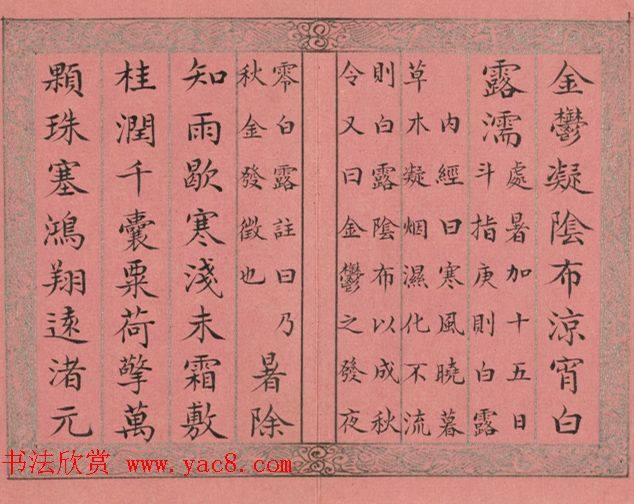 金鬱凝陰布涼宵白
露濡處暑加十五日
斗指庚則白露
内經曰寒風曉暮
草木凝烟濕化不流
則白露陰布以成秋
令又曰金鬱之發夜
零白露註曰乃
秋金發徵也
暑除
知雨歇寒淺未霜敷
桂潤千囊粟荷擎萬
顆珠塞鴻翔遠渚元
书法欣赏 www.yac8.com